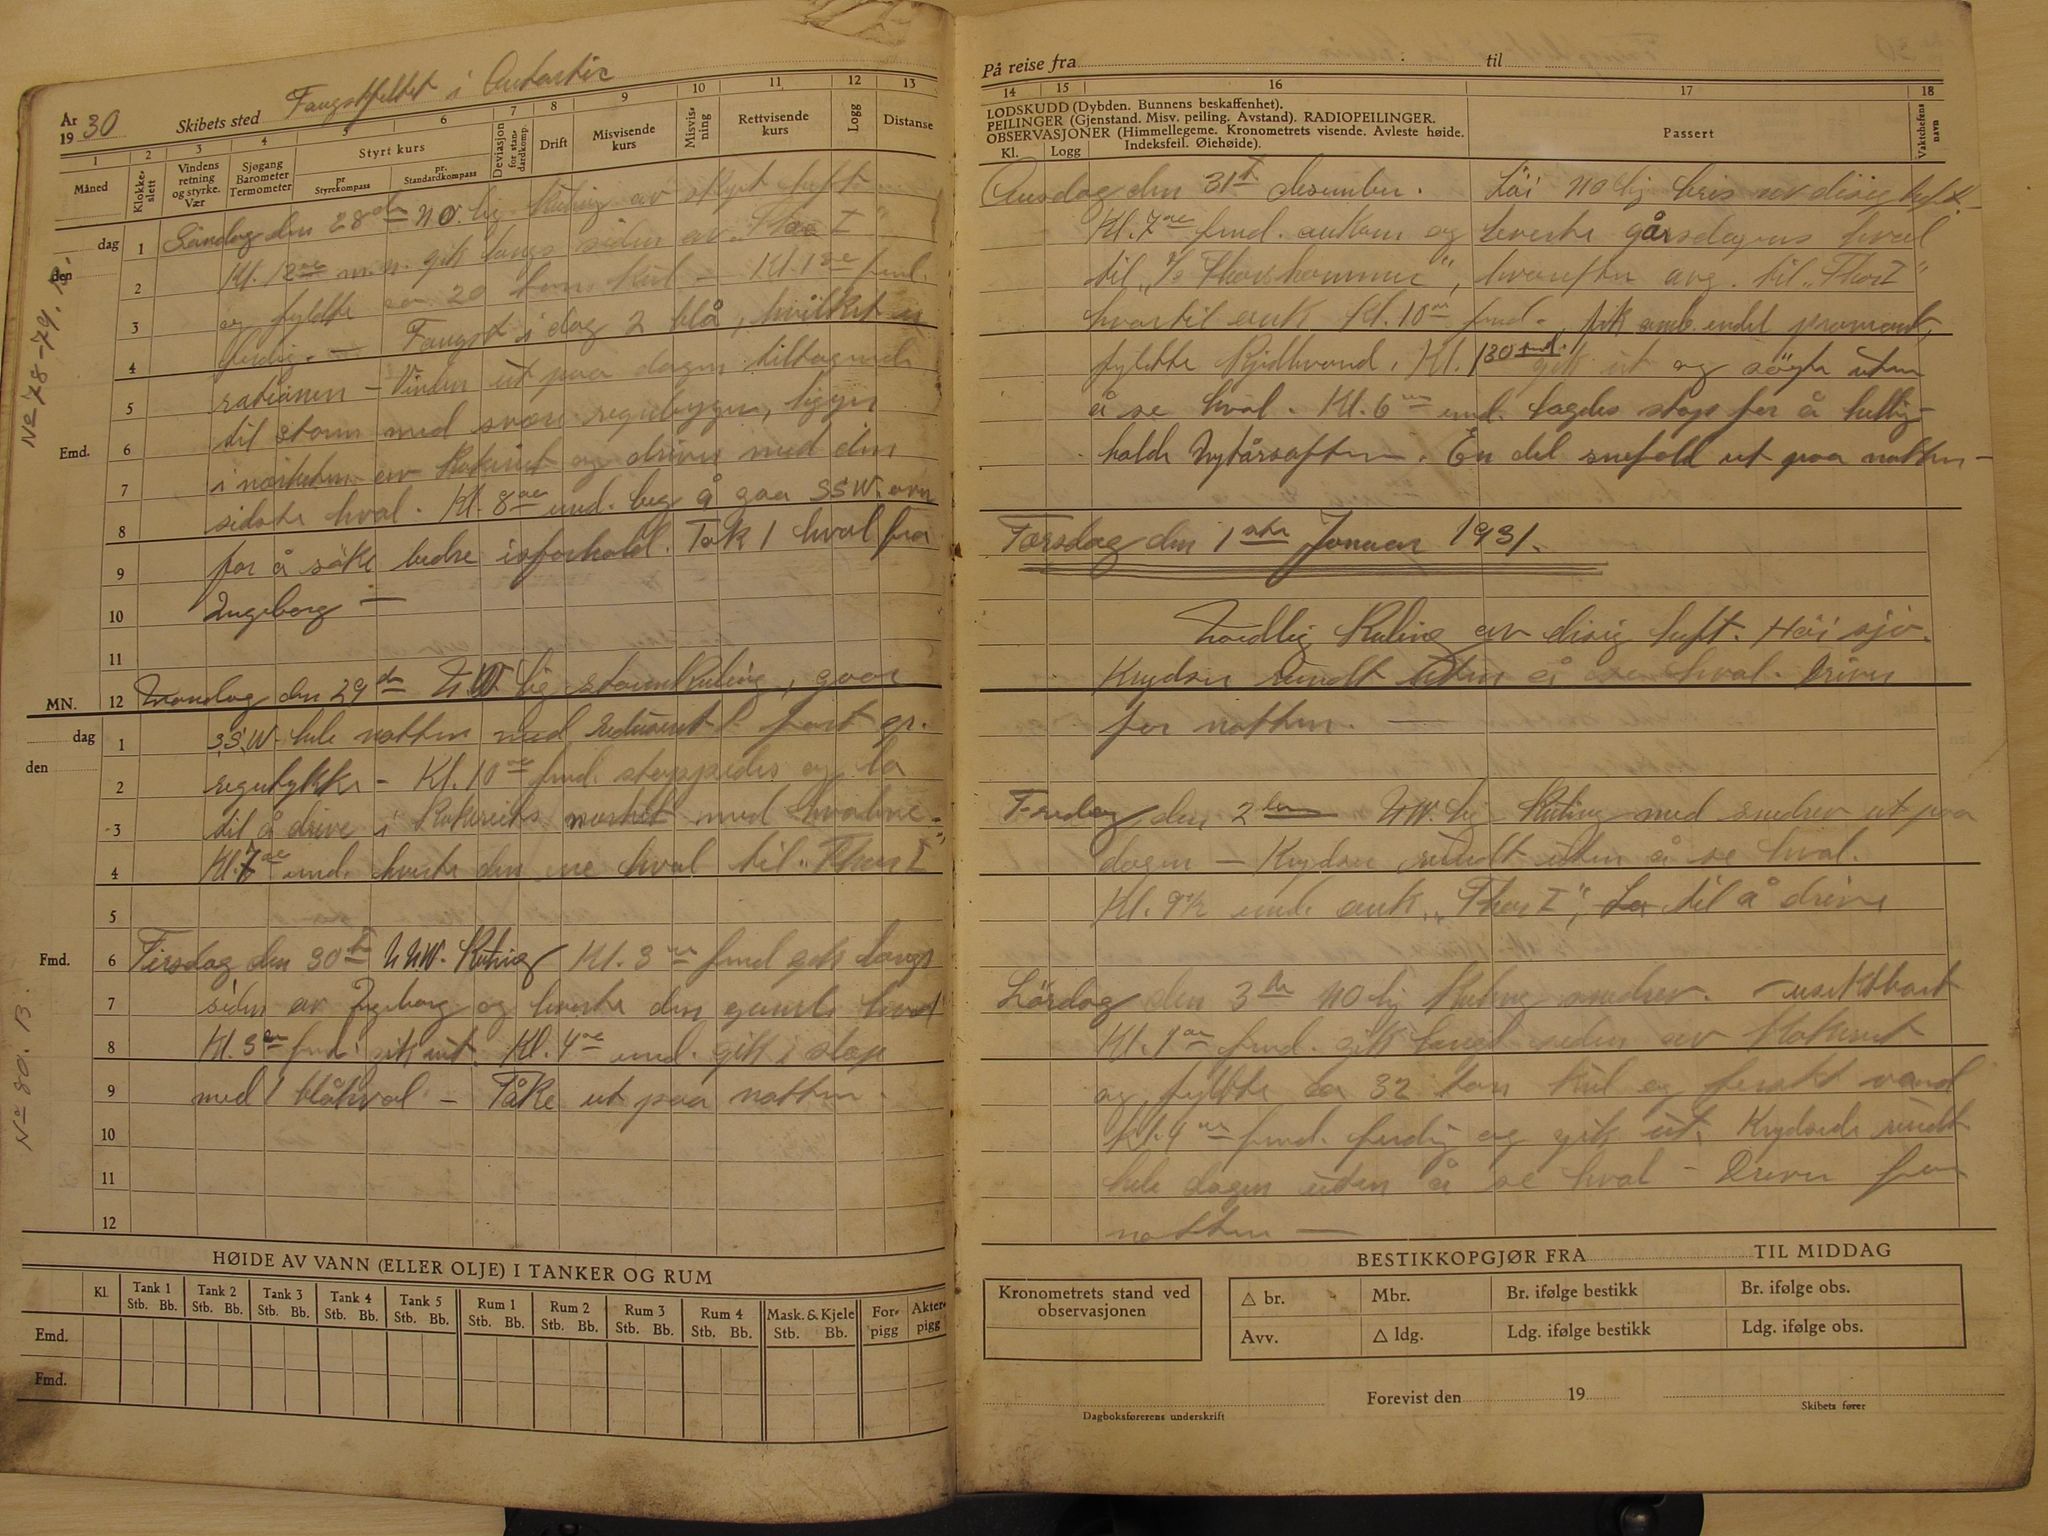 År 1930 Skibets sted Fangstfeltet i Antarktis
1 2 3 4 5 6 7 8 9 10 11 12 13
Måned Klokkeslett Vindens retning og styrke. Vær Sjøgang Barometer Termometer Styrt kurs pr. Styrekompass pr. Standardkompass Deviasjon for standardkomp. Drift Misvisende kurs Misvisning Rettvisende kurs Logg Distanse
dag 1 Søndag den 28de NO.lig Kuling av skyet luft
den 2 Kl. 12 m.n. gik langs siden av "Thor I"
3 og fyldte ca 20 tons kul – Kl. 1 fmd.
4 ferdig. – Fangst i dag 2 blå, hvilket er
5 rationen – Vinden ut paa dagen tiltagende
Emd. 6 til storm med svære regnbyger, ligger
7 i nærheten av Kokeriet og driver med den
8 sidste hval. Kl. 8 emd. beg å gaa SSW.over
9 for å søke bedre isforhold. Tok 1 hval fra
10 Ingeborg –
11
MN. 12 Mandag den 29de NW lig stormkuling, gaar
dag 1 SSW hele natten med redusert fart gr.
den 2 regntykke – Kl. 10 fmd. stoppedes og la
3 til å drive i Kokeriets nærhet med hvalene.
4 Kl. 7 emd. leverte den ene hval til "Thor I"
5
Fmd. 6 Tirsdag den 30te NNW. Kuling Kl. 3 fmd gik langs
7 siden av Ingeborg og leverte den gamle hval
8 Kl. 3 fmd. gik ut. Kl. 4 emd. gik i slæp
9 med 1 blåhval – Tåke ut paa natten.
10
11
12
No 78-79. B.
No 80. B.
HØIDE AV VANN (ELLER OLJE) I TANKER OG RUM
Kl. Tank 1 Tank 2 Tank 3 Tank 4 Tank 5 Rum 1 Rum 2 Rum 3 Rum 4 Mask. & Kjele Forpigg Akterpigg
Stb. Bb. Stb. Bb. Stb. Bb. Stb. Bb. Stb. Bb. Stb. Bb. Stb. Bb. Stb. Bb. Stb. Bb. Stb. Bb.
Emd.
Fmd.
På reise fra til
14 15 16 17 18
LODSKUDD (Dybden. Bunnens beskaffenhet).
PEILINGER (Gjenstand. Misv. peiling. Avstand). RADIOPEILINGER.
OBSERVASJONER (Himmellegeme. Kronometrets visende. Avleste høide.
Kl. Logg Indeksfeil. Øiehøide).
Passert
Vaktchefens navn
Onsdag den 31te desember. Løi NO lig bris av disig luft.
Kl. 7 fmd. ankom og leverte gårsdagens hval
til "Thorshammer", hvorefter avg. til "Thor I"
hvortil ank Kl. 10 fmd. fik omb. endel proviant,
fyldte Kjedlvand. Kl. 1 30 emd. gik ut og søgte uten
å se hval. Kl. 6 emd. lagdes stop for å hellig-
holde Nytårsaften. En del snefald ut paa natten –
Torsdag den 1ste Januar 1931.
Nordlig Kuling av disig luft. Høi sjø.
Krydser rundt uten å se hval. Driver
for natten. –
Fredag den 2den NW. lig Kuling med snedrev ut paa
dagen – Krydser rundt uten å se hval.
Kl. 9 emd. ank. "Thor I", La til å drive
Lørdag den 3de NO lig Kuling snedrev. – usiktbart
Kl. 1 fmd. gik langs siden av Kokeriet
og fyldte ca 32 ton kul og ferskt vand
Kl. 4 fmd. ferdig og gik ut. Krydsede rundt
hele dagen uten å se hval – Driver for
natten –
BESTIKKOPGJØR FRA TIL MIDDAG
Kronometrets stand ved observasjonen
△ br. Mbr. Br. ifølge bestikk Br. ifølge obs.
Avv. △ ldg. Ldg. ifølge bestikk Ldg. ifølge obs.
Forevist den 19
Dagboksførerens underskrift Skibets fører